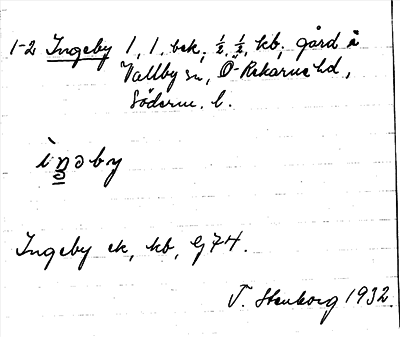 1-2 Ingeby 1, 1, bek, ½, ½, kb, gård i
Vallby sn, Ö-Rekarne hd,
Söderm. l.
ìŋəby
Ingeby ek, kb, G74.
T. Stenborg 1932.